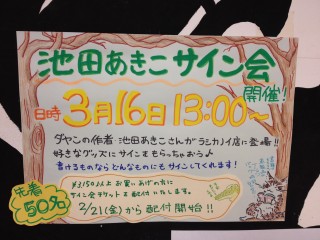 池田あきこサイン会
開催!
日時 3月16日 13:00～
ダヤンの作者 池田あきこさんがラシカノイ店に登場!!
好きなグッズにサインをもらっちゃおう♪
書けるものならどんなものにもサインしてくれます!
¥3,150以上お買いあげの方に
サイン会チケットを配付いたします。
2/21(金)から配付開始!!
先着
50名